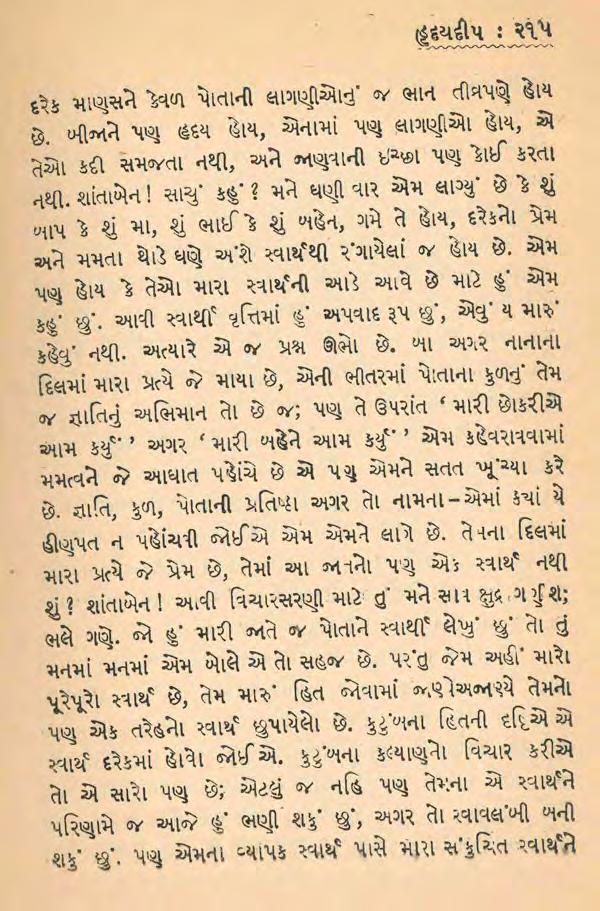 હૃદયદીપ : ૨૧૫
દરેક માણસને કેવળ પોતાની લાગણીઓનું જ ભાન તીવ્રપણે હોય
છે. બીજાને પણ હૃદય હોય, એનામાં પણ લાગણીઓ હોય, એ
તેઓ કદી સમજતા નથી, અને જાણવાની ઇચ્છા પણ કોઈ કરતા
નથી. શાંતાબેન! સાચું કહું? મને ઘણી વાર એમ લાગ્યું છે કે શું
બાપ કે શું મા, શું ભાઈ કે શું બહેન, ગમે તે હોય, દરેકનો પ્રેમ
અને મમતા થોડે ઘણે અંશે સ્વાર્થથી રંગાયેલાં જ હોય છે. એમ
પણ હોય કે તેઓ મારા સ્વાર્થની આડે આવે છે માટે હું એમ
કહું છું. આવી સ્વાર્થી વૃત્તિમાં હું અપવાદ રૂપ છું, એવું ય મારું
કહેવું નથી. અત્યારે એ જ પ્રશ્ન ઊભો છે. બા અગર નાનાના
દિલમાં મારા પ્રત્યે જે માયા છે, એની ભીતરમાં પોતાના કુળનું તેમ
જ જ્ઞાતિનું અભિમાન તો છે જ; પણ તે ઉપરાંત ‘ મારી છોકરીએ
આમ કર્યું ’ અગર ‘ મારી બહેને આમ કર્યું ’ એમ કહેવરાવવામાં
મમત્વને જે આઘાત પહોંચે છે એ પણ એમને સતત ખૂંચ્યા કરે
છે. જ્ઞાતિ, કુળ, પોતાની પ્રતિષ્ઠા અગર તો નામના – એમાં ક્યાં યે
હીણપત ન પહોંચવી જોઈએ એમ એમને લાગે છે. તેમના દિલમાં
મારા પ્રત્યે જે પ્રેમ છે, તેમાં આ જાતનો પણ એક સ્વાર્થ નથી
શું? શાંતાબેન! આવી વિચારસરણી માટે તું મને સાવ ક્ષુદ્ર ગણીશ;
ભલે ગણે. જો હું મારી જાતે જ પોતાને સ્વાર્થી લેખું છું તો તું
મનમાં મનમાં એમ બોલે એ તો સહજ છે. પરંતુ જેમ અહીં મારો
પૂરેપૂરો સ્વાર્થ છે, તેમ મારું હિત જોવામાં જાણેઅજાણ્યે તેમનો
પણ એક તરેહનો સ્વાર્થ છુપાયેલો છે. કુટુંબના હિતની દૃષ્ટિએ એ
સ્વાર્થ દરેકમાં હોવો જોઈએ. કુટુંબના કલ્યાણનો વિચાર કરીએ
તો એ સારો પણ છે; એટલું જ નહિ પણ તેમના એ સ્વાર્થને
પરિણામે જ આજે હું ભણી શકું છું, અગર તો સ્વાવલંબી બની
શકું છું. પણ એમના વ્યાપક સ્વાર્થ પાસે મારા સંકુચિત સ્વાર્થને